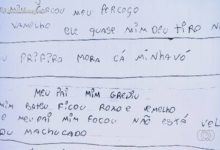 MIM FOCOU MEU PERCOÇO
VAMELHO ELE QUASE MIM DEU TIRO NA
EU PRIFIRO MORA CÁ MINHA VÓ
MEU PAI MIM GREDIU
MIM BATEU FICOU ROXO E MELHO
E MEU PAI MIM FOCOU NÃO ESTÁ
OU MACHUCADO